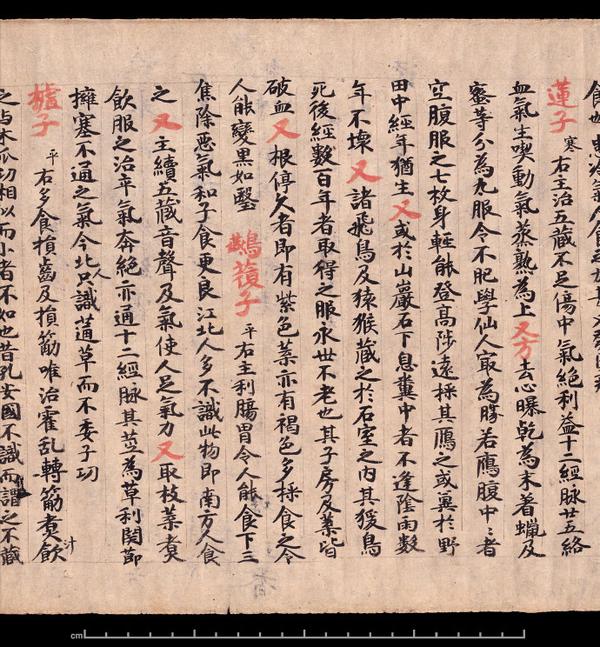 蓮子 寒 右主治五藏不足傷中氣絕利益十二經脉廿五絡
血氣生喫動氣蒸熟為上又方去心曝乾為末著蠟及
蜜等分為丸服令不肥學仙人㝡為勝若鴈腹中〻者
空腹服之七枚身輕能登高陟遠採其鴈之或糞於野
田中經年猶生又或於山巖石下息糞中者不逢陰雨數
年不壞又諸飛鳥及猿猴藏之於石室之内其猨鳥
死後經數百年者取得之服永世不老也其子房及葉皆
破血又根停久者即有紫色葉亦有褐色多採食之令
人能變黑如瑿 鷰蕧子 平右主利腸胃令人能食下三
焦除惡氣和子食更良江北人多不識此物即南方人食
之又主續五藏音聲及氣使人足氣力又取枝葉煮
飲服之治卒氣奔絕亦通十二經脉其莖為草利関節
擁塞不通之氣今北人只識蓪草而不委子功
樝子 平 右多食損齒及損筋唯治霍乱轉筋煮飲汁
之与木瓜功相似而小者不如也昔孔安國不識而謂之不藏
cm